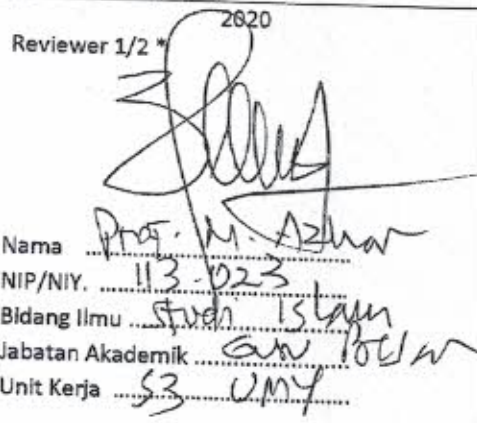 2020
Reviewer 1/2 *
Nama Prof. M. Azhar
NIP/NIY. 113.023
Bidang Ilmu Studi Islam
Jabatan Akademik Guru Besar
Unit Kerja S3 UMY